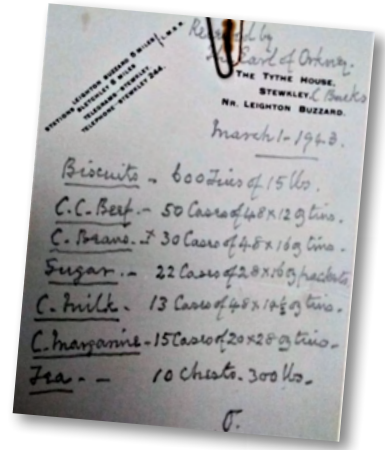 Received by
The Earl of Orkney.
STATIONS LEIGHTON BUZZARD 6 MILES } L.M.&R.
BLETCHLEY 6 MILES
TELEGRAMS-STEWKLEY.
TELEPHONE-STEWKLEY 244.
THE TYTHE HOUSE,
STEWKLEY, Bucks
NR. LEIGHTON BUZZARD.
March 1 - 1943.
Biscuits - 600 Tins of 15 lbs.
C.C. Beef. - 50 Cases of 48 x 12 oz tins.
C. Beans. - 30 Cases of 48 x 16 oz tins.
Sugar. - 22 Cases of 28 x 16 oz packets
C. Milk. - 13 Cases of 48 x 14½ oz tins.
C. Margarine - 15 Cases of 20 x 28 oz tins.
Tea. - - 10 Chests. 300 lbs.
O.